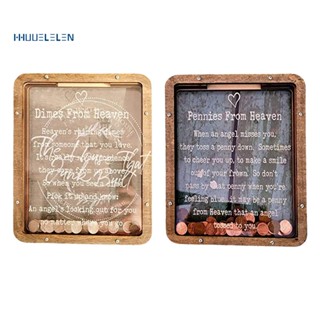 HHUUELELEN
Dimes From Heaven
Heaven's raining dimes
from someone that you love.
It
So when you
Pick it up and
An angel's looking out for you
no matter where you go
Pennies From Heaven
When an angel misses you,
they toss a penny down. Sometimes
to cheer you up, to make a smile
out of your frown. So don't
pass by that penny when you're
feeling blue. it may be a penny
from Heaven that an angel
tossed to you.